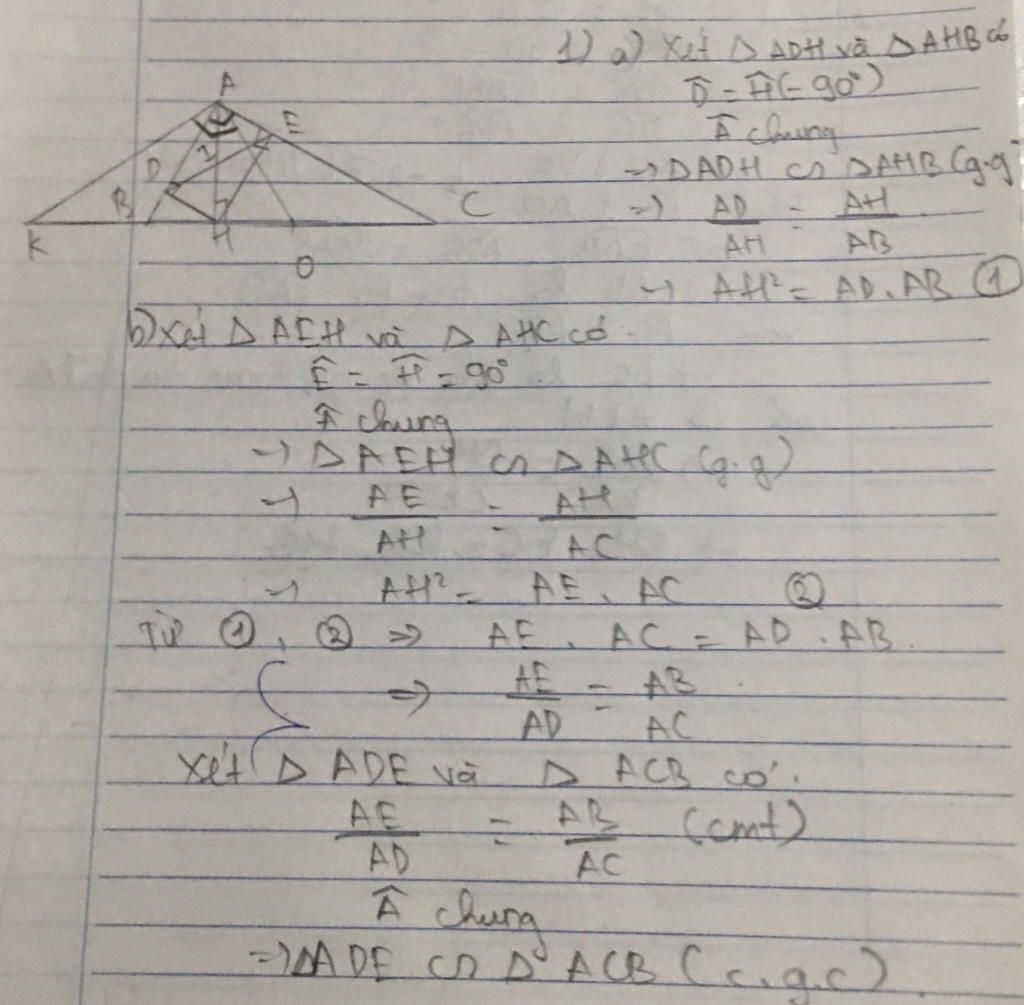 1) a) Xét Δ ADH và Δ AHB có
D̂ = Ĥ (= 90°)
Â chung
→ ΔADH ∽ ΔAHB (g.g)
→ AD/AH = AH/AB
→ AH² = AD. AB ①
A
E
I
D
B
C
K
H
O
b) Xét Δ AEH và Δ AHC có.
Ê = Ĥ = 90°.
Â chung
→ Δ AEH ∽ Δ AHC (g.g)
→ AE/AH = AH/AC
→ AH² = AE. AC ②
Từ ①, ② ⇒ AE. AC = AD. AB.
⇒ AE/AD = AB/AC.
Xét Δ ADE và Δ ACB có.
AE/AD = AB/AC (cmt)
Â chung
⇒ ΔADE ∽ Δ ACB (c.g.c)